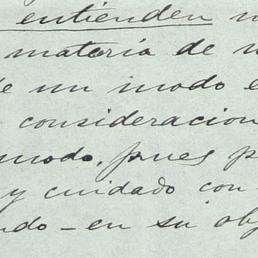 entienden
materia de
de un modo e
consideracion
modo, pues p
y cuidado con
ndo - en su obj